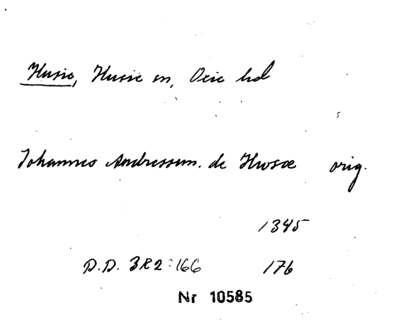 Husie, Husie sn, Oxie hd
Johannes Andressun. de Hwsæ orig.
1345
D.D. 3R2:166 176
Nr 10585